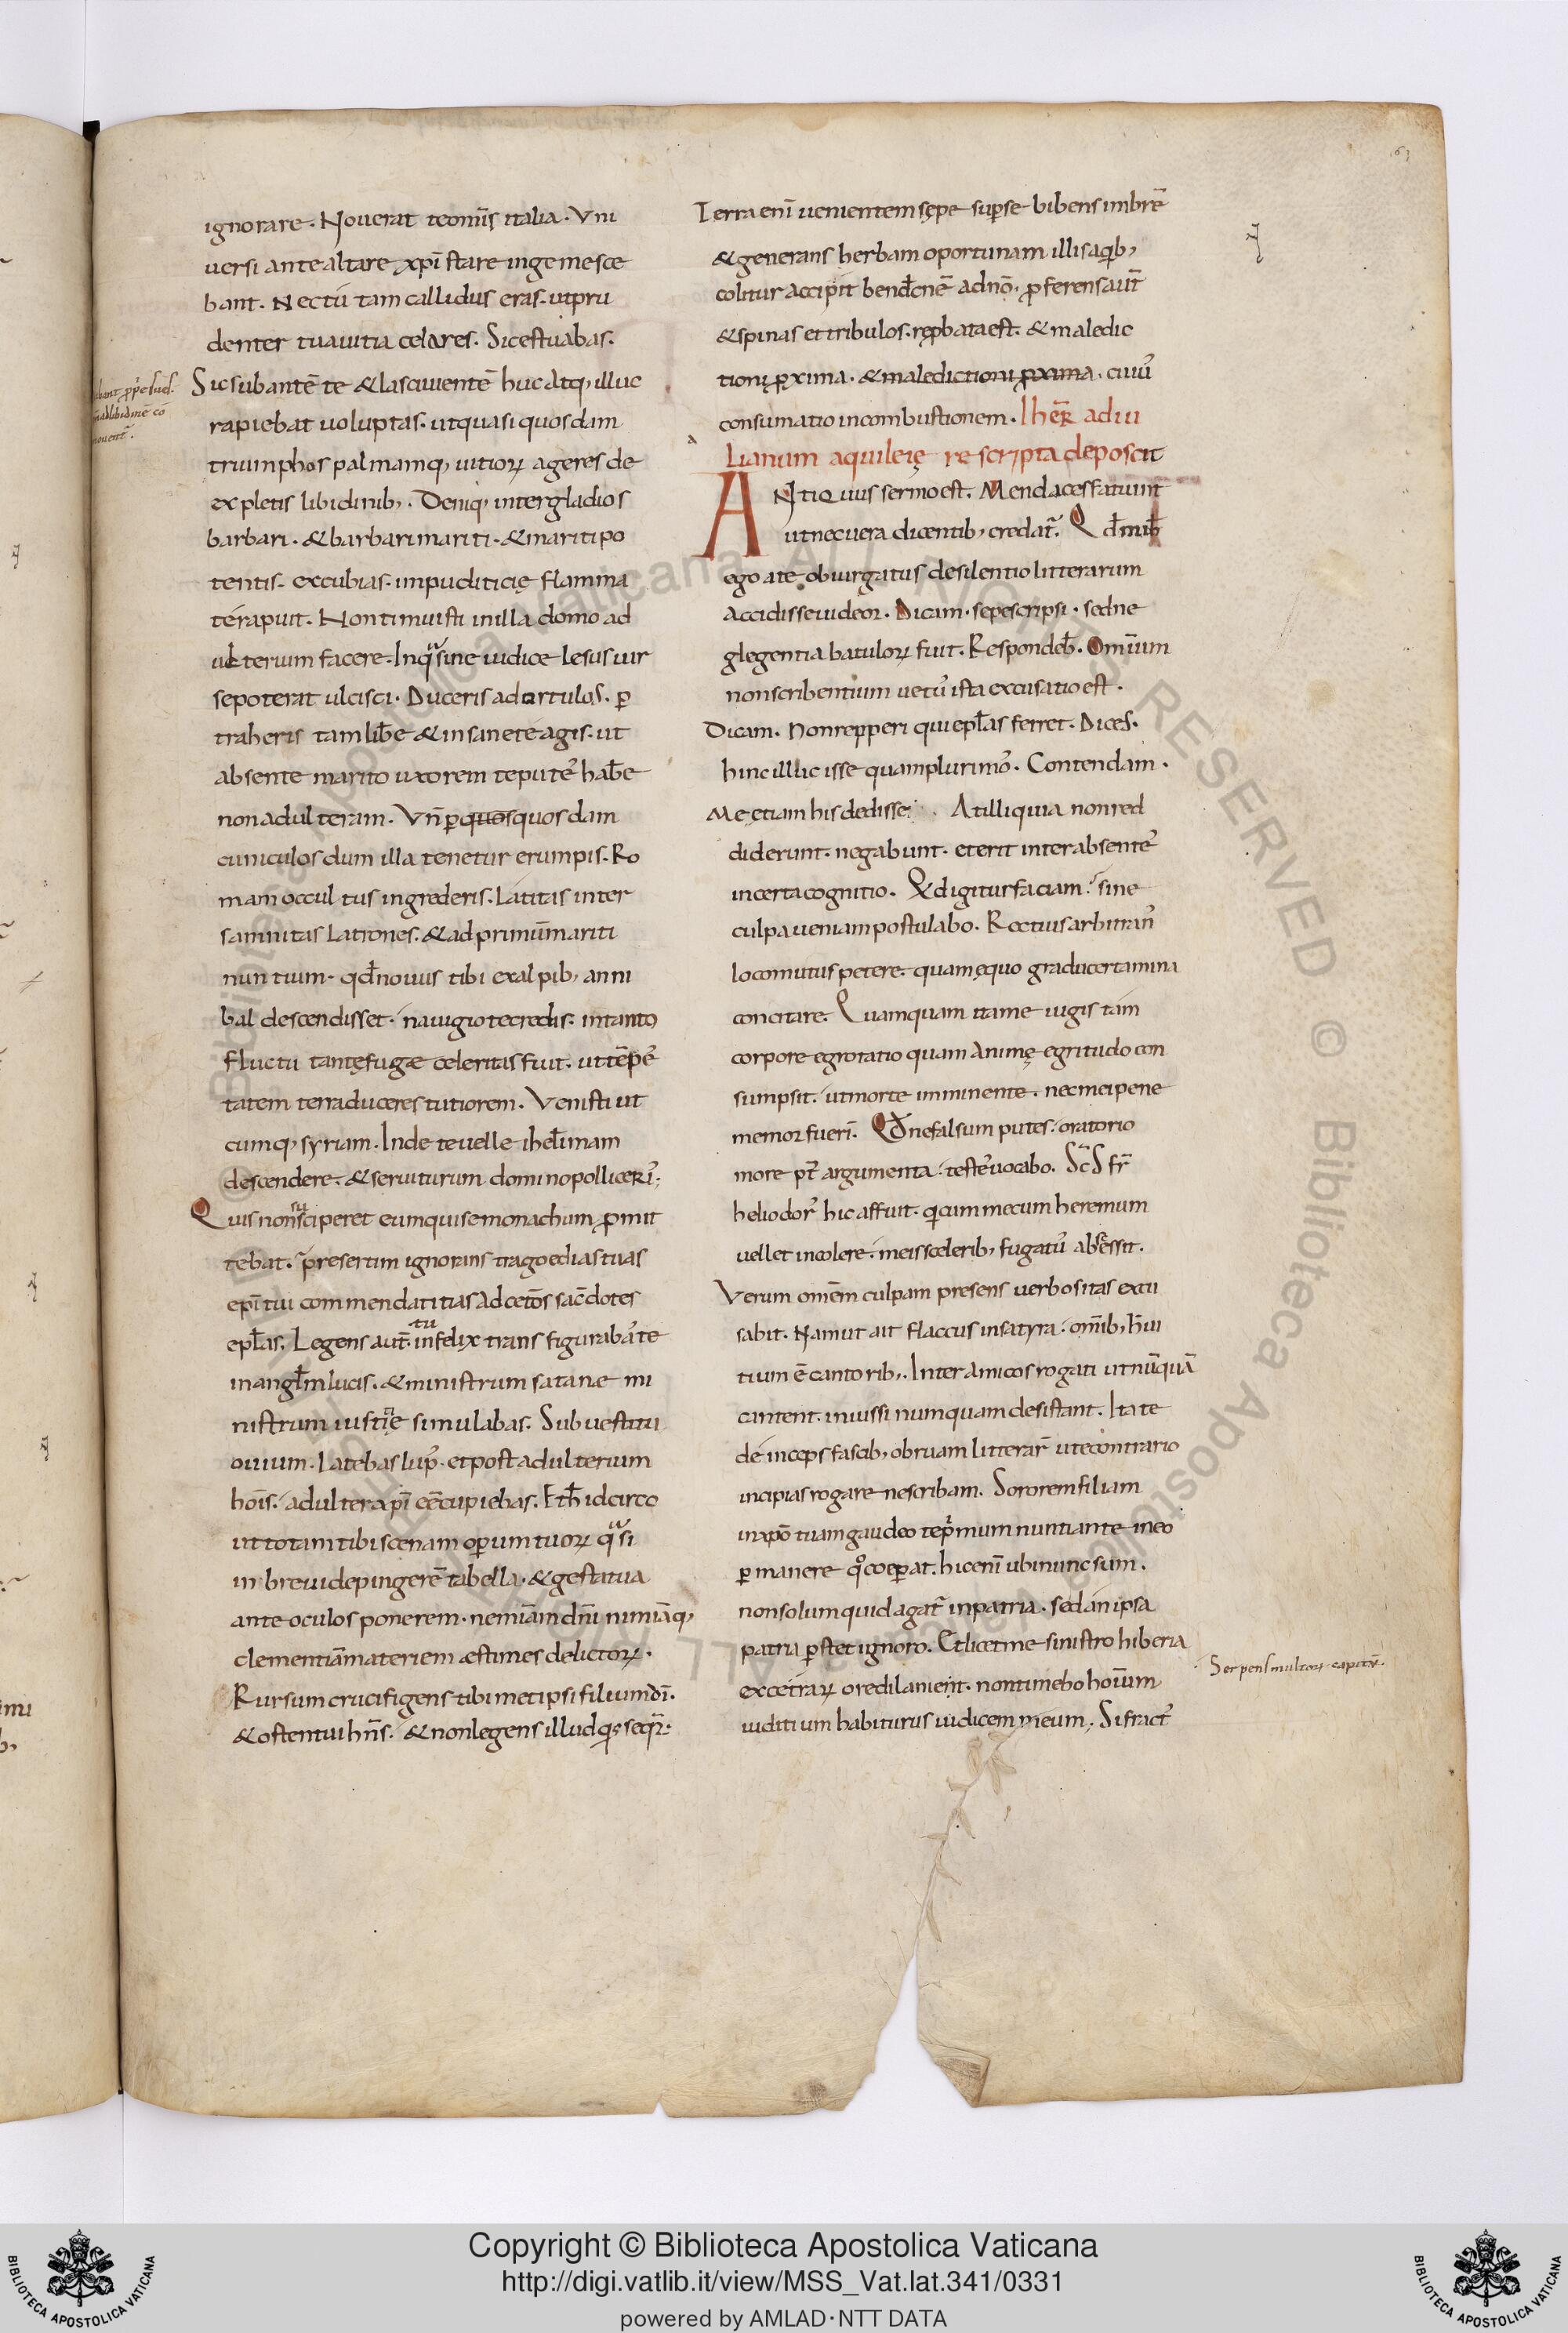 ignorare. Nouerat te omīs italia. Vni
uersi ante altare xp̄i stare ingemesce
bant. Nec tú tam callidus eras. ut pru
denter tua uitia celares. Sic estuabas.
Sic subantē te & lasciuientē huc atq; illuc
rapiebat uoluptas. ut quasi quosdam
triumphos palmamq; uitioꝝ ageres de
expletis libidinib;. Deniq; inter gladios
barbari. & barbari mariti. & mariti po
tentis. excubias. impuditicię flamma
te rapuit. Non timuisti in illa domo ad
ulterium facere. In qua sine iudice lesus uir
se poterat ulcisci. Duceris ad ortulos. ꝑ
traheris tam lib̄e & insane te agis. ut
absente marito uxorem te putēt hab̄e
non adulteram. Vn̄ ꝑ quos quosdam
cuniculos dum illa tenetur erumpis. Ro
mam occultus ingrederis. Latitas inter
samnitas latrones. & ad primū mariti
nuntium. qd̄ nouus tibi ex alpib; anni
bal descendisset. nauigio te credis. in tanto
fluctu tantę fugæ celeritas fuit. ut tēpes
tatem terra duceres tutiorem. Venisti ut
cumq; syriam. Inde te uelle ihel̄imam
descendere. & seruiturum domino polliceri;
Quis non susciperet eum qui se monachum ꝓmit
tebat. presertim ignorans tragoedias tuas
epī tui commendatitias ad cetōs sac̄dotes
epl̄as. Legens aut̄. tu infelix transfigurabā te
in angl̄m lucis. & ministrum satane mi
nistrum iustitie simulabas. Sub uestitu
ouium. latebas lupꝰ. et post adulterium
hoīs. adulter xp̄i eē cupiebas. Et h̄ idcirco
ut totam tibi scenam oꝑum tuoꝝ quasi
in breui depingerē tabella. & gesta tua
ante oculos ponerem. ne miā dn̄i nimiāq;
clementiā materiem æstimes delictoꝝ.
Rursum crucifigens tibimet ipsi filium dī.
& ostentui hn̄s. & non legens illud q; seqr̄.
Terra enī uenientem sępe sup se bibens imbrē
& generans herbam oportunam illis a qb;
colitur accipit bened̄cnē a dn̄o. ꝓferens aut̄
& spinas et tribulos. reꝓbata est. & maledic
tioni ꝓxima. & maledictioni ꝓxima. cuiꝰ
consumatio in combustionem. Iher̄ ad iu
lianum aquileię rescripta deposcit
ANtiQuus sermo est. Mendaces faciunt
ut nec uera dicentib; credat̄. Qd̄ mih
ego a te obiurgatus de silentio litterarum
accidisse uideor. Dicam. sepe scripsi. sed ne
glegentia batuloꝝ fuit. Respondeb̄. Omīum
non scribentium uetꝰ ista excusatio est.
Dicam. Non repperi qui epl̄as ferret. Dices.
hinc illuc isse quamplurimos. Contendam.
Me etiam his dedisse. At illi quia non red
diderunt. negabunt. et erit inter absentes
incerta cognitio. Qd̄ igitur faciam. sine
culpa ueniam postulabo. Rectius arbitrans
loco mutus petere. quam ęquo gradu certamina
concitare. Quamquam ita me iugis tam
corpore egrotatio quam animę egritudo con
sumpsit. ut morte imminente. nec mei pene
memor fuerī. Qd̄ ne falsum putes. oratorio
more pt̄ argumenta. testes uocabo. Sc̄s fr̄
heliodorꝰ hic affuit. qi cum mecum heremum
uellet incolere. meis scelerib; fugatꝰ abscessit.
Verum omēm culpam presens uerbositas excu
sabit. Nam ut ait flaccus in satyra. omīb; h̄ ui
tium ē cantorib;. Inter amicos rogati ut nūquā
cantent. iniussi numquam desistant. Ita te
deinceps fascib; obruam litterar̄. ut e contrario
incipias rogare ne scribam. Sororem filiam
in xpō tuam gaudeo te pmum nuntiante in eo
ꝑmanere qo cœꝑat. hic enī ubi nunc sum.
non solum quid agat̄ in patria. sed an ipsa
patria ꝑstet ignoro. Et licet me sinistro hiberia
excetraꝝ ore dilanient. non timebo hoīum
iuditium habiturus iudicem meum. Si fractꝰ
Serpens multoꝝ capitū.
Copyright © Biblioteca Apostolica Vaticana
http://digi.vatlib.it/view/MSS_Vat.lat.341/0331
powered by AMLAD·NTT DATA